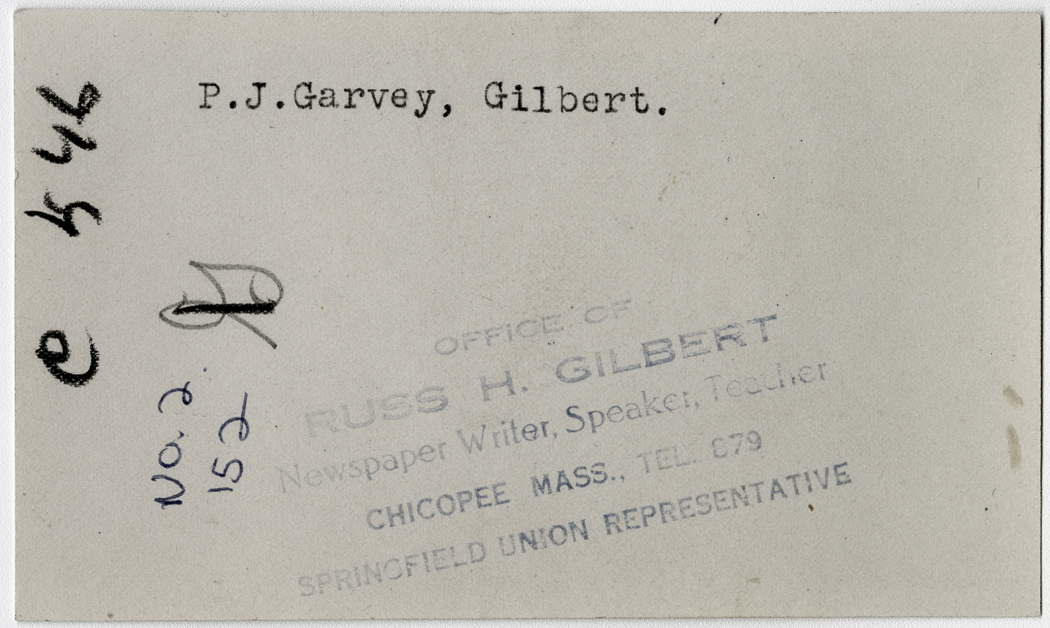 P.J.Garvey, Gilbert.
No. 2.
152
OFFICE OF
RUSS H. GILBERT
Newspaper Writer, Speaker, Teacher
CHICOPEE MASS., TEL. 879
SPRINGFIELD UNION REPRESENTATIVE